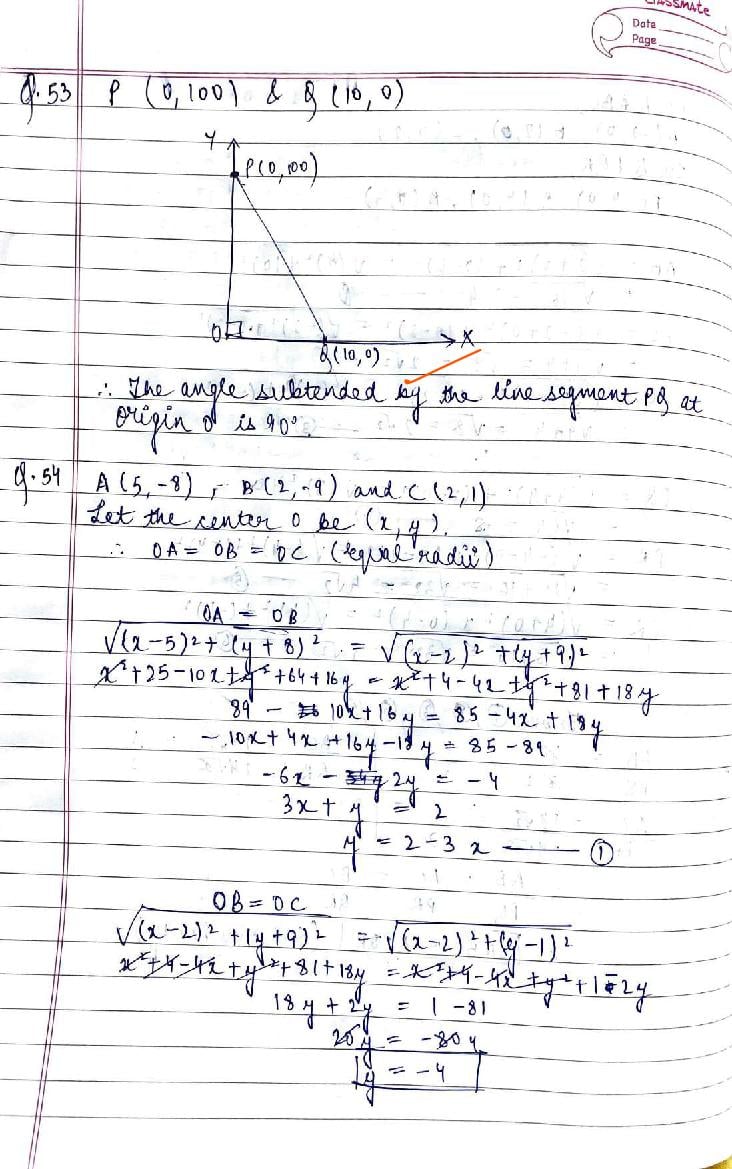 CLASSMATE
Date
Page
Q.53 P (0,100) & Q (10,0)
Y
P(0,100)
O
Q(10,0)
X
∴ The angle subtended by the line segment PQ at
origin O is 90°.
Q.54 A(5,-8), B(2,-9) and C(2,1)
Let the center O be (x,y).
∴ OA = OB = OC (equal radii)
OA = OB
√(x-5)²+(y+8)² = √(x-2)²+(y+9)²
x²+25-10x+y²+64+16y = x²+4-4x+y²+81+18y
89 - 10x+16y = 85-4x+18y
-10x+4x+16y-18y = 85-89
-6x - 2y = -4
3x+y = 2
y = 2-3x —— ①
OB = OC
√(x-2)²+(y+9)² = √(x-2)²+(y-1)²
x²+4-4x+y²+81+18y = x²+4-4x+y²+1-2y
18y+2y = 1-81
20y = -80 4
y = -4